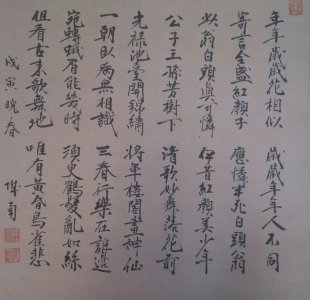 年年歲歲花相似 歲歲年年人不同
寄言全盛紅顏子 應憐半死白頭翁
此翁白頭真可憐 伊昔紅顏美少年
公子王孫芳樹下 清歌妙舞落花前
光祿池臺開錦繡 將軍樓閣畫神仙
一朝臥病無相識 三春行樂在誰邊
宛轉蛾眉能幾時 須臾鶴髮亂如絲
但看古來歌舞地 唯有黃昏鳥雀悲
戊寅晚春